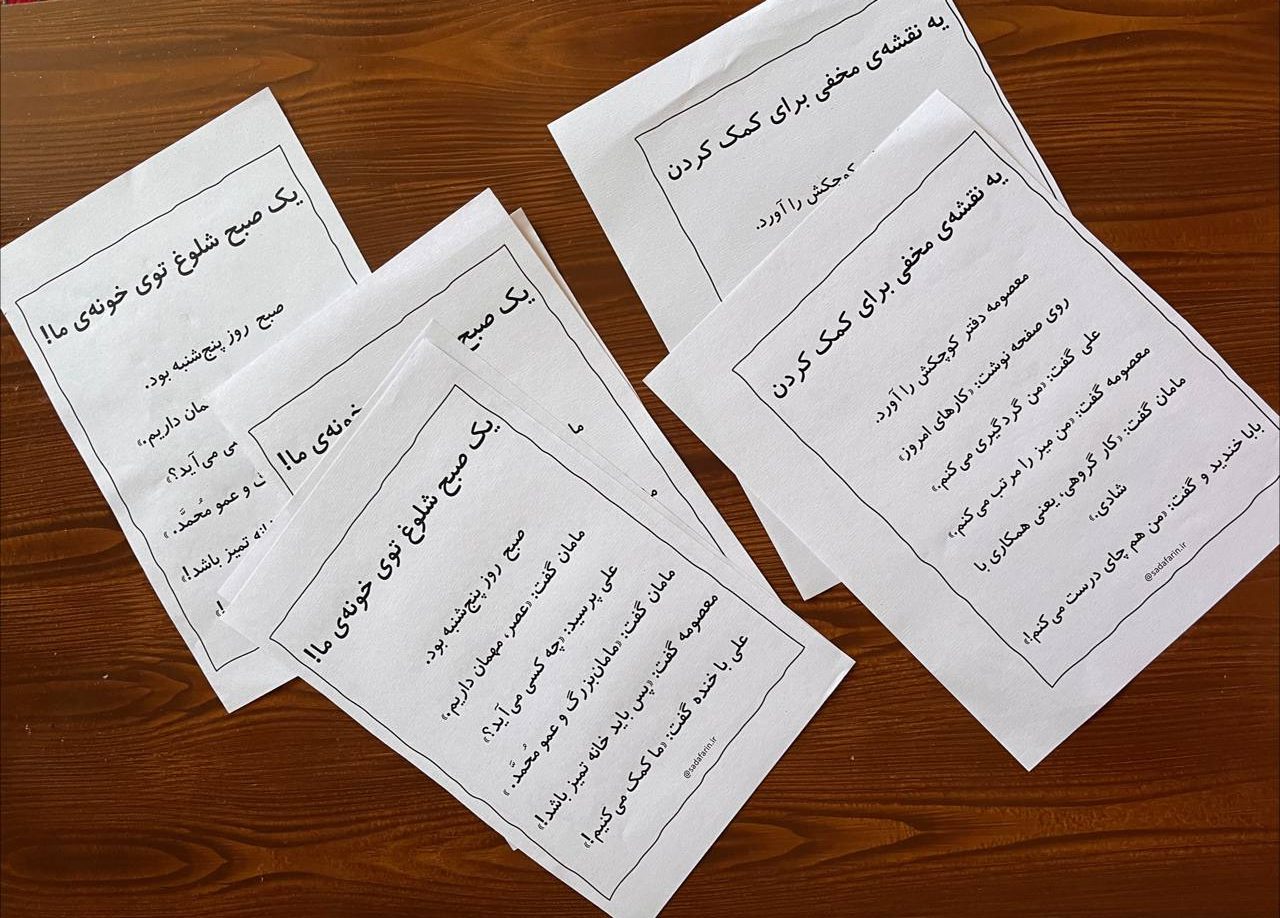 یه نقشه‌ی مخفی برای کمک کردن
کوچکش را آورد.
یه نقشه‌ی مخفی برای کمک کردن
معصومه دفتر کوچکش را آورد.
روی صفحه نوشت: «کارهای امروز»
علی گفت: «من گردگیری می‌کنم.»
معصومه گفت: «من میز را مرتب می‌کنم.»
مامان گفت: «کار گروهی، یعنی همکاری با
شادی.»
بابا خندید و گفت: «من هم چای درست می‌کنم!»
@sadafarin.ir
یک صبح شلوغ توی خونه‌ی ما!
صبح روز پنج‌شنبه بود.
همان داریم.»
سی می‌آید؟»
و عمو مُحمَّد.»
خانه تمیز باشد!»
یک صبح
خونه‌ی ما!
ما
یک صبح شلوغ توی خونه‌ی ما!
صبح روز پنج‌شنبه بود.
مامان گفت: «عصر، مهمان داریم.»
علی پرسید: «چه کسی می‌آید؟»
مامان گفت: «مامان‌بزرگ و عمو مُحمَّد.»
معصومه گفت: «پس باید خانه تمیز باشد!»
علی با خنده گفت: «ما کمک می‌کنیم!»
@sadafarin.ir